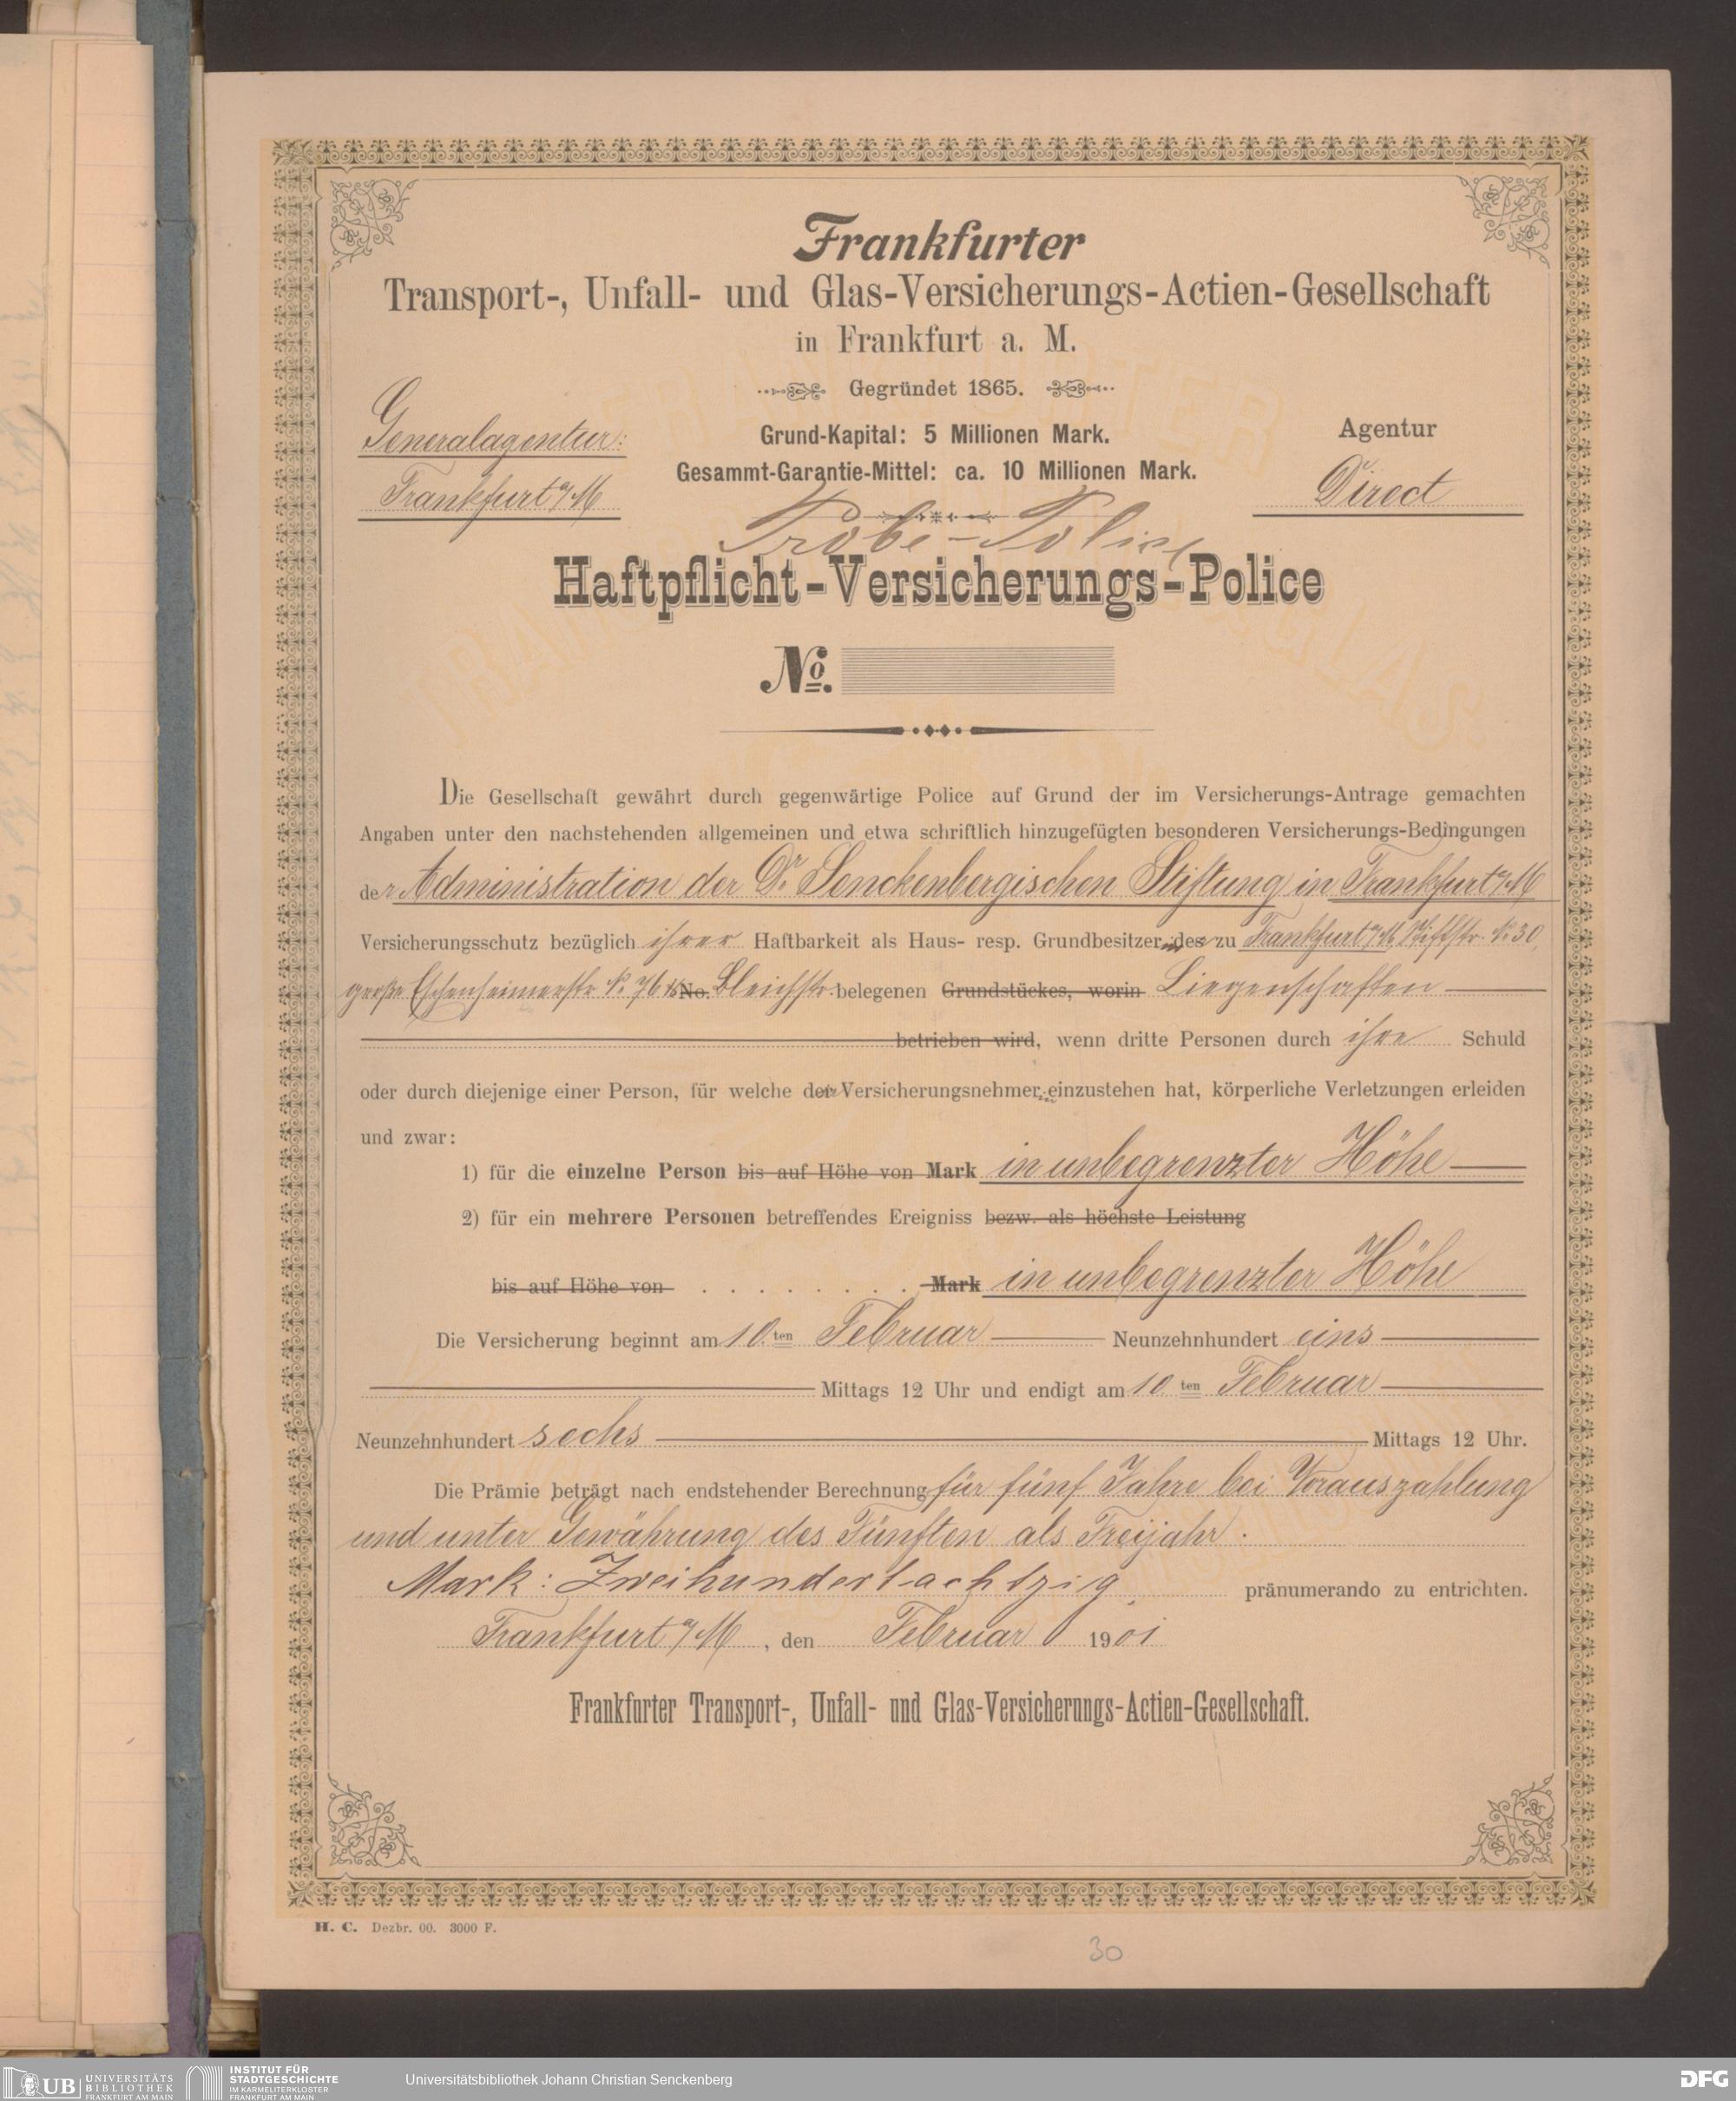 Frankfurter
Transport-, Unfall- und Glas-Versicherungs-Actien-Gesellschaft
in Frankfurt a. M.
Gegründet 1865.
Generalagentur:
Frankfurt a/M
Grund-Kapital: 5 Millionen Mark.
Gesammt-Garantie-Mittel: ca. 10 Millionen Mark.
Agentur
Direct
Probe-Police
Haftpflicht-Versicherungs-Police
No.
Die Gesellschaft gewährt durch gegenwärtige Police auf Grund der im Versicherungs-Antrage gemachten
Angaben unter den nachstehenden allgemeinen und etwa schriftlich hinzugefügten besonderen Versicherungs-Bedingungen
der Administration der Dr. Senckenbergischen Stiftung in Frankfurt a/M
Versicherungsschutz bezüglich ihrer Haftbarkeit als Haus- resp. Grundbesitzerin der zu Frankfurt a/M, Stiftstr. No. 30,
große Eschenheimerstr. No. 76 No. Bleichstr. belegenen Grundstückes, worin Liegenschaften
betrieben wird, wenn dritte Personen durch ihre Schuld
oder durch diejenige einer Person, für welche der Versicherungsnehmer einzustehen hat, körperliche Verletzungen erleiden
und zwar:
1) für die einzelne Person bis auf Höhe von Mark in unbegrenzter Höhe
2) für ein mehrere Personen betreffendes Ereigniss bezw. als höchste Leistung
bis auf Höhe von . . . . . . . . Mark in unbegrenzter Höhe
Die Versicherung beginnt am 10.ten Februar Neunzehnhundert eins
Mittags 12 Uhr und endigt am 10.ten Februar
Neunzehnhundert sechs Mittags 12 Uhr.
Die Prämie beträgt nach endstehender Berechnung für fünf Jahre bei Vorauszahlung
und unter Gewährung des Fünften als Freijahr.
Mark: Zweihundertachtzig pränumerando zu entrichten.
Frankfurt a/M, den Februar 1901
Frankfurter Transport-, Unfall- und Glas-Versicherungs-Actien-Gesellschaft.
H. C. Dezbr. 00. 3000 F.
30
UB UNIVERSITÄTS BIBLIOTHEK FRANKFURT AM MAIN
INSTITUT FÜR STADTGESCHICHTE IM KARMELITERKLOSTER FRANKFURT AM MAIN
Universitätsbibliothek Johann Christian Senckenberg
DFG